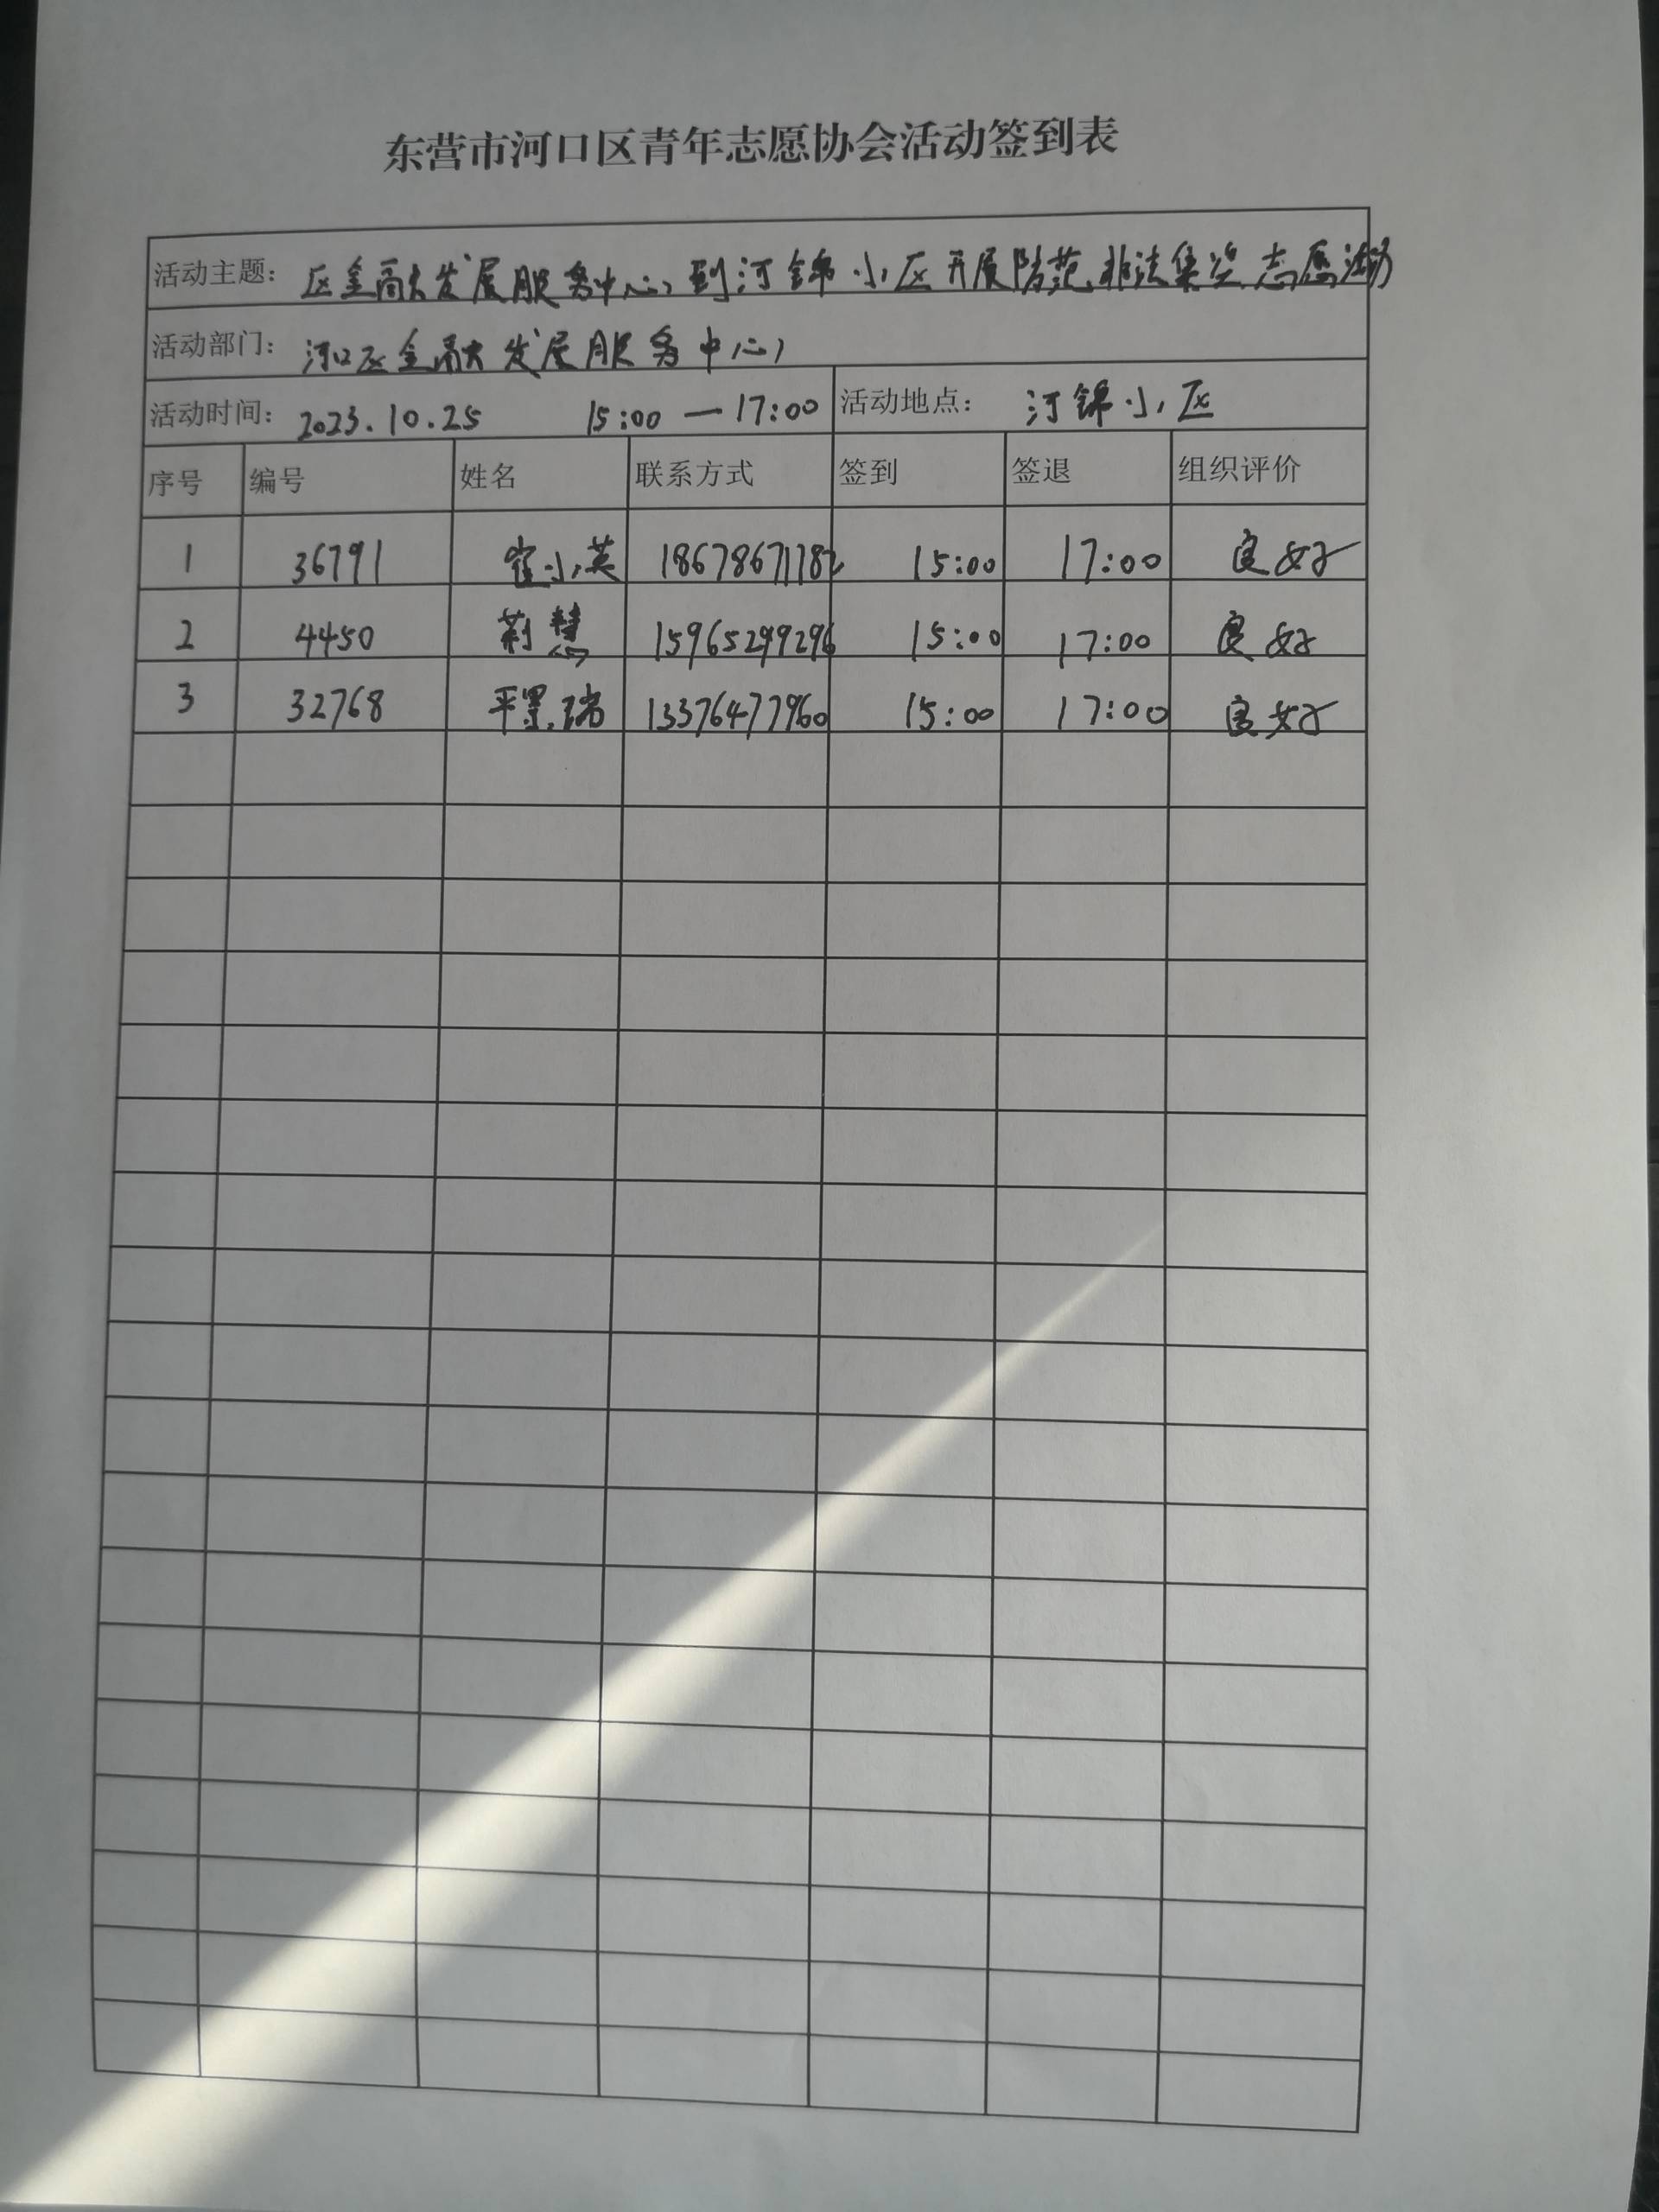 东营市河口区青年志愿协会活动签到表
活动主题: 区金融发展服务中心到河锦小区开展防范非法集资志愿活动
活动部门: 河口区金融发展服务中心
活动时间: 2023.10.25 15:00—17:00 活动地点: 河锦小区
序号 编号 姓名 联系方式 签到 签退 组织评价
1 36791 崔小英 18678671782 15:00 17:00 良好
2 4450 荆慧 15965299296 15:00 17:00 良好
3 32768 平 瑞 13376477960 15:00 17:00 良好